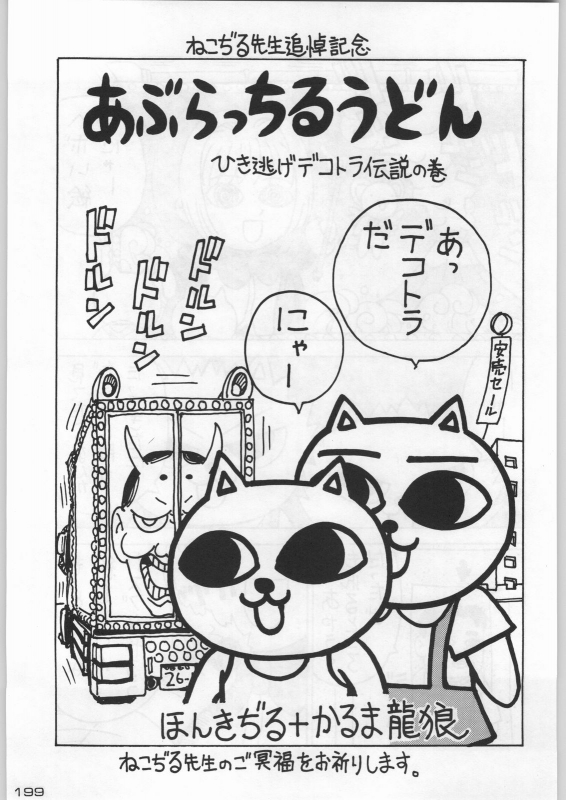 ねこぢる先生追悼記念
あぶらっちるうどん
ひき逃げデコトラ伝説の巻
あっ
デコトラ
だ
にゃー
ドルン
ドルン
ドルン
安売セール
26-
ほんきぢる+かるま龍狼
ねこぢる先生のご冥福をお祈りします。
199